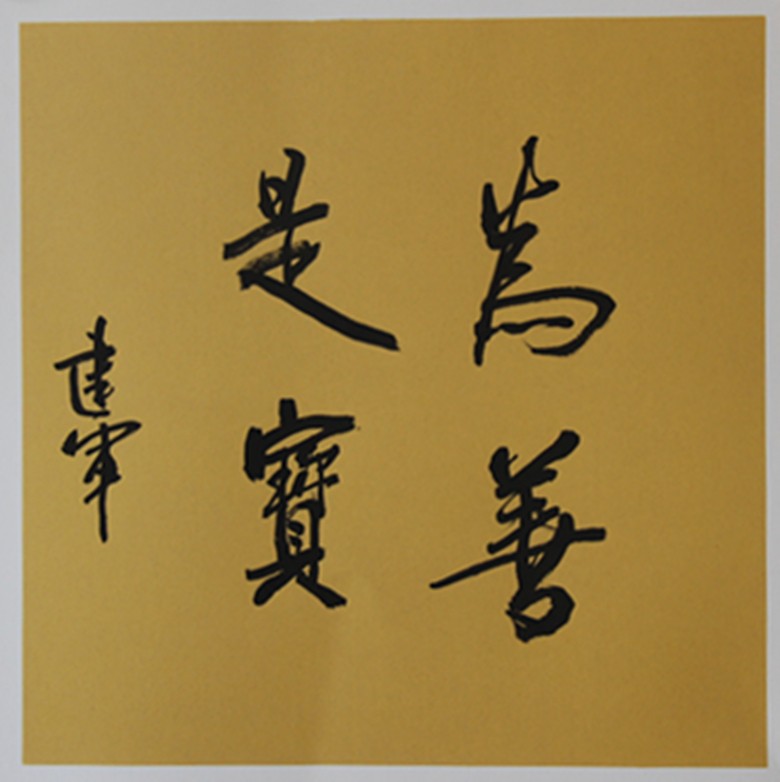 為善
是寶
建軍